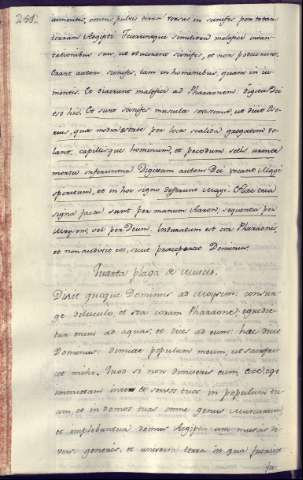 258.
iumentis, omnis pulvis terræ versus in scinifes per totam
terram Aegypti. Feceruntque similiter malefici incan-
tationibus suis, ut educerent scinifes, et non potuerunt.
Erant autem scinifes, tam in hominibus, quam in iu-
mentis. Et dixerunt malefici ad Pharaonem: digitus Dei
est hic. Et sunt scinifes muscula
quæ per loca
capillisque hominum, et pecudum
Digitum autem Dei vocant Magi
spiritum, et in hoc signo defecerunt Magi. Hæc tria
signa facta sunt per manum Aaron, sequentia per
Moysem, vel per Deum. Induratum est cor Pharaonis,
et non audivit eos, sicut præceperat Dominus.
Quarta plaga de muscis.
Dixit quoque Dominus ad Moysem: consur-
ge diluculo, et sta coram Pharaone; egredie-
tur enim ad aquas; et dices ad eum: hæc dicit
Dominus: dimitte populum meum, ut sacrificet
mihi. Quod si non dimiseris eum, ecce ego
immittam in te et servos tuos, in populum tu-
um, et in domos tuas omne genus muscarum,
et implebuntur domus Aegyptiorum muscis di-
versi generis, et universa terra in qua fuerint